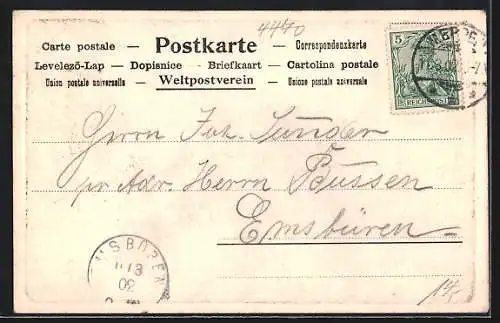 4440
Carte postale — Postkarte — Correspondenzkarte
Levelező-Lap — Dopisnice — Briefkaart — Cartolina postale
Union postale universelle — Weltpostverein — Unione postale universale
5
REICHSPOST
Herrn Joh. Sunder
pr Adr. Herrn Bussen
Emsbüren
EMSBÜREN